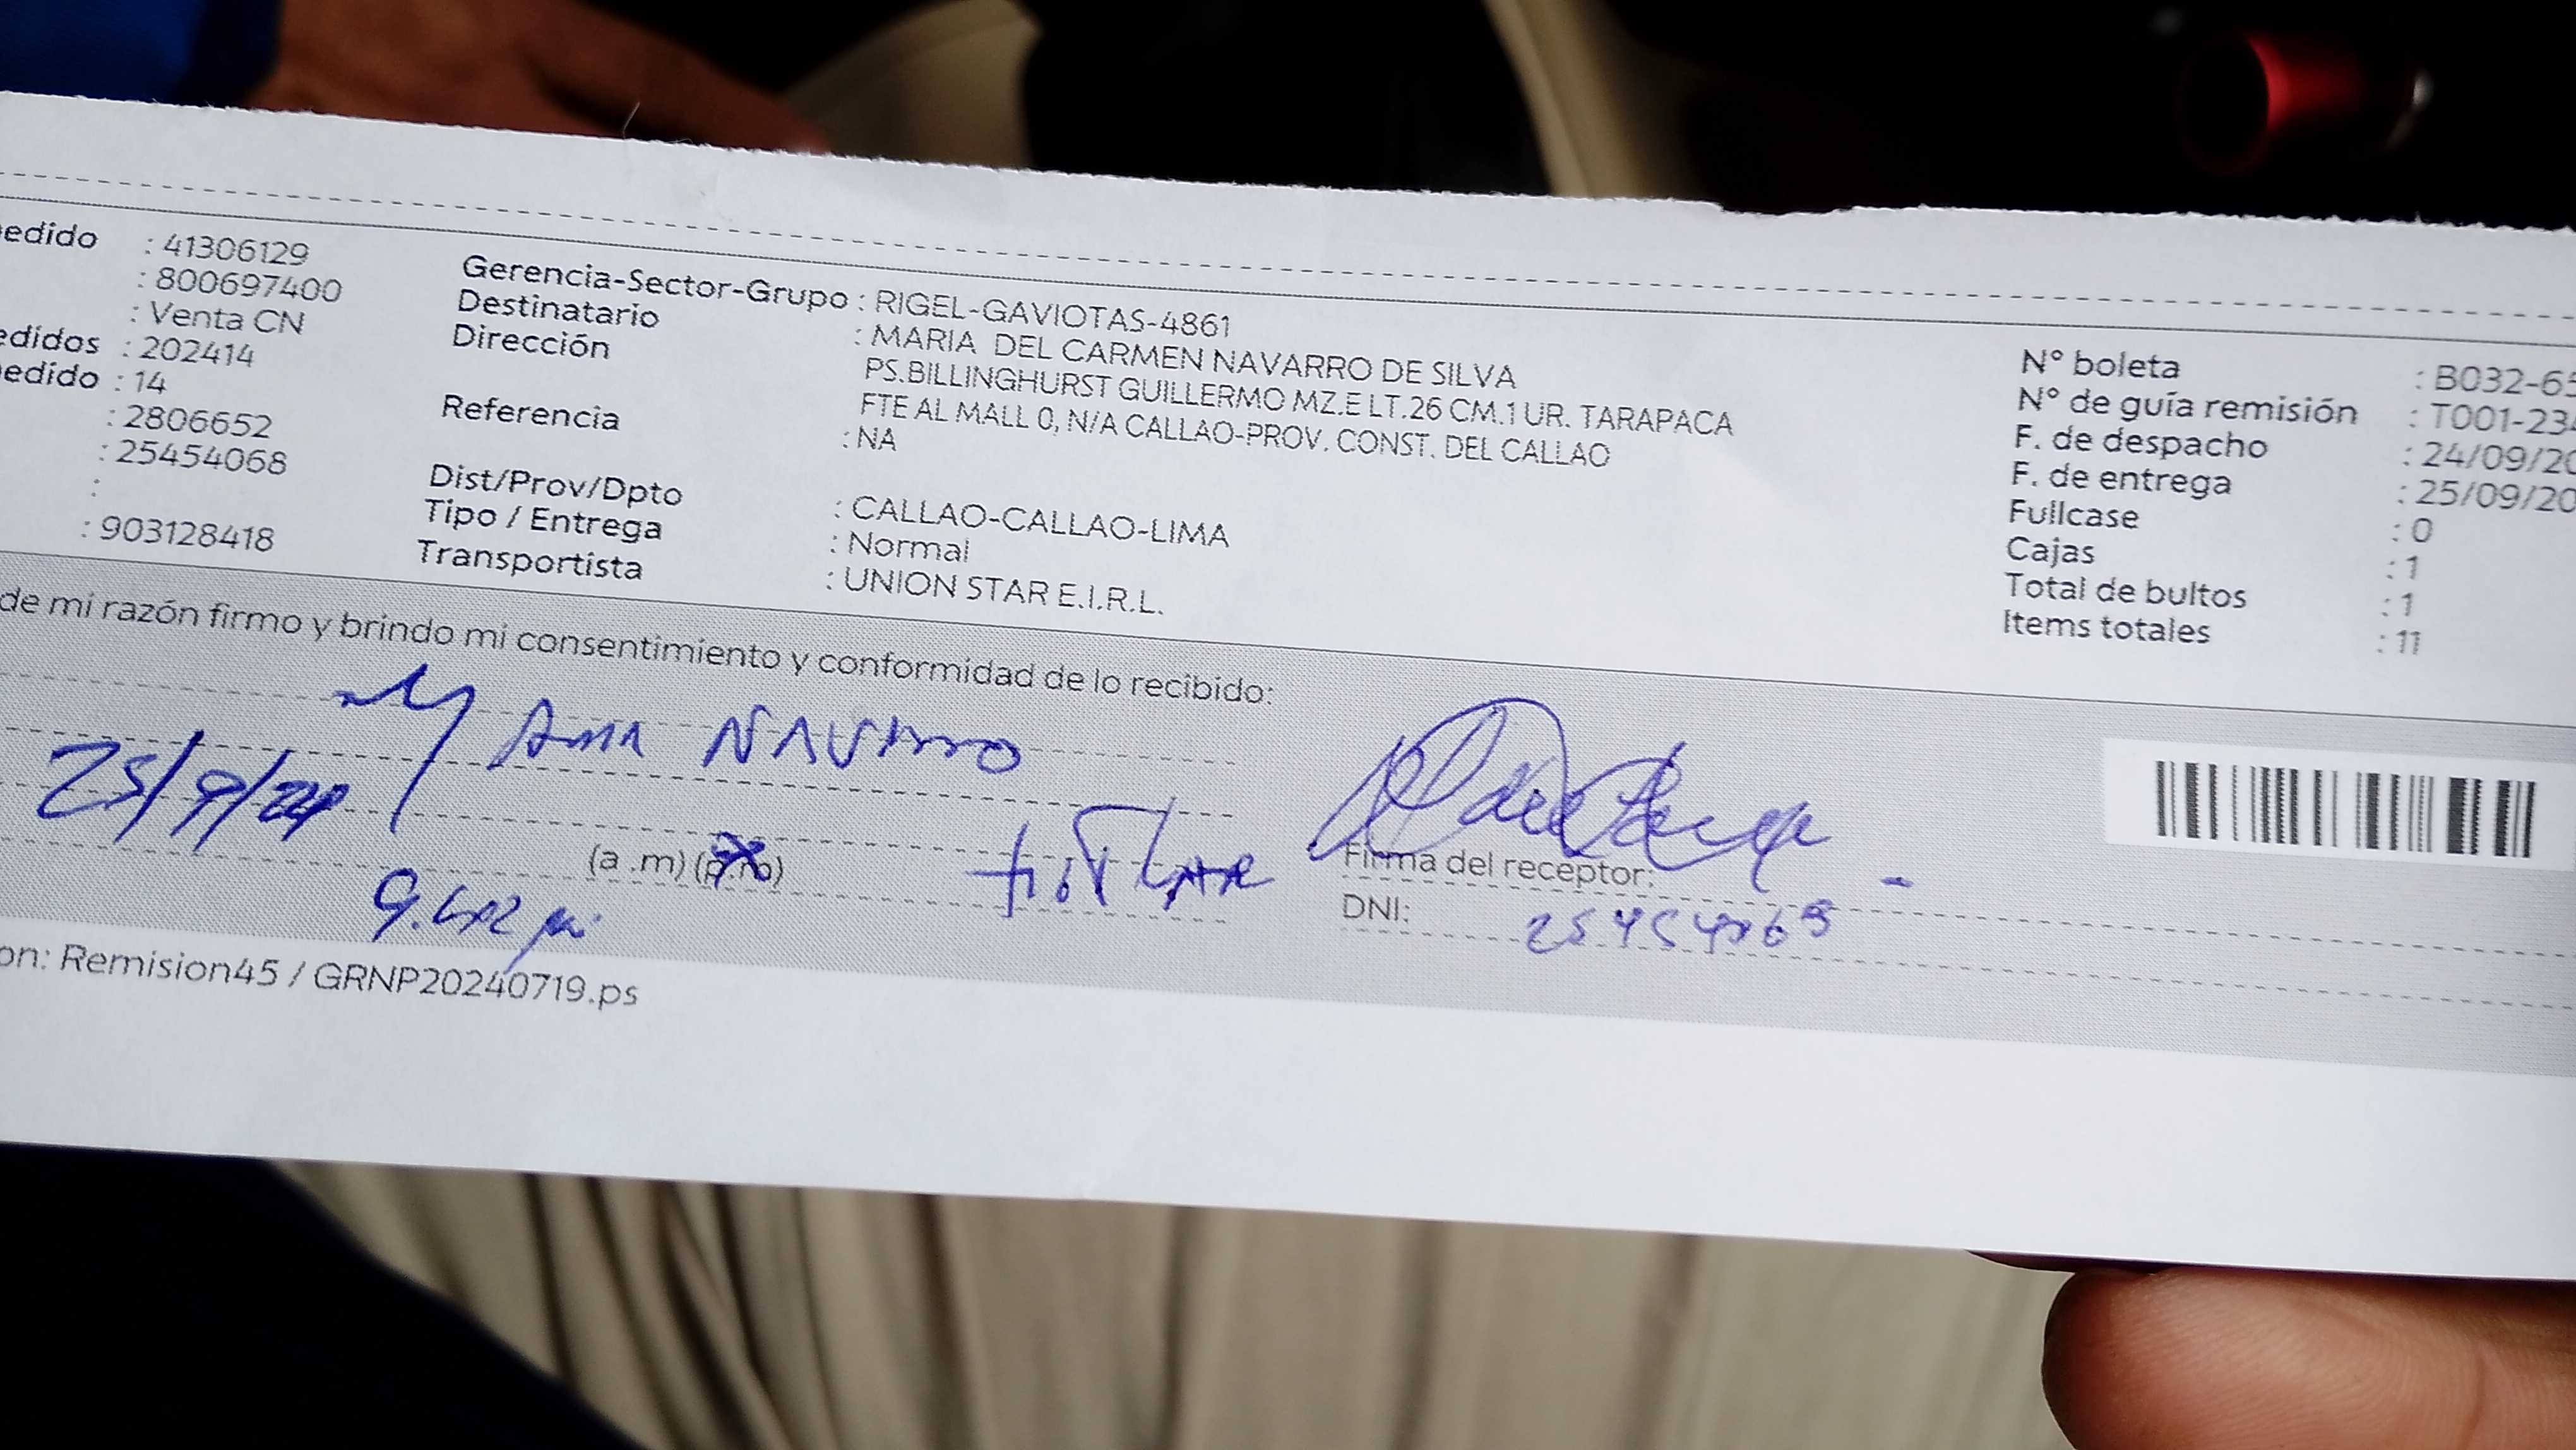 edido : 41306129
: 800697400
: Venta CN
edidos : 202414
edido : 14
: 2806652
: 25454068
:
: 903128418
Gerencia-Sector-Grupo : RIGEL-GAVIOTAS-4861
Destinatario : MARIA DEL CARMEN NAVARRO DE SILVA
Dirección PS.BILLINGHURST GUILLERMO MZ.E LT.26 CM.1 UR. TARAPACA
FTE AL MALL 0, N/A CALLAO-PROV. CONST. DEL CALLAO
Referencia : NA
Dist/Prov/Dpto : CALLAO-CALLAO-LIMA
Tipo / Entrega : Normal
Transportista : UNION STAR E.I.R.L.
N° boleta : B032-65
N° de guía remisión : T001-234
F. de despacho : 24/09/20
F. de entrega : 25/09/20
Fullcase : 0
Cajas : 1
Total de bultos : 1
Items totales : 11
de mi razón firmo y brindo mi consentimiento y conformidad de lo recibido:
NAVARRO
25/9/24
(a .m) (p.m)
Firma del receptor:
DNI:
on: Remision45 / GRNP20240719.ps